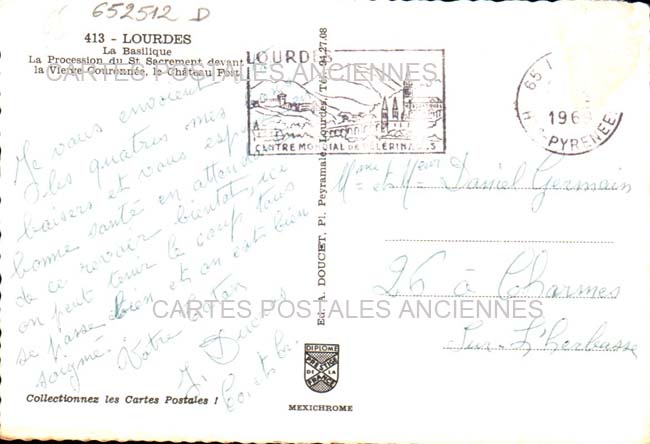 652512 D
413 - LOURDES
La Basilique
La Procession du St. Sacrement devant
la Vierge Couronnée, le Château Fort
CARTES POSTALES ANCIENNES
LOURDES
CENTRE MONDIAL DE PÈLERINAGES
65
196
PYRENEES
Je vous envoient
les quatres mes
baisers et vous
bonne santé en attendant
de ce revoir bientôt, ici
on peut tenir le coup tous
se passe bien et on est bien
soigné. Votre
J.
Ed. A. DOUCET, Pl. Peyramale, Lourdes, Tél. 94.27.08
Mme et Mr Daniel Germain
26 à Charmes
Sur L'herbasse
CARTES POSTALES ANCIENNES
DIPLOME
PRESTIGE
DE LA
FRANCE
Collectionnez les Cartes Postales !
MEXICHROME